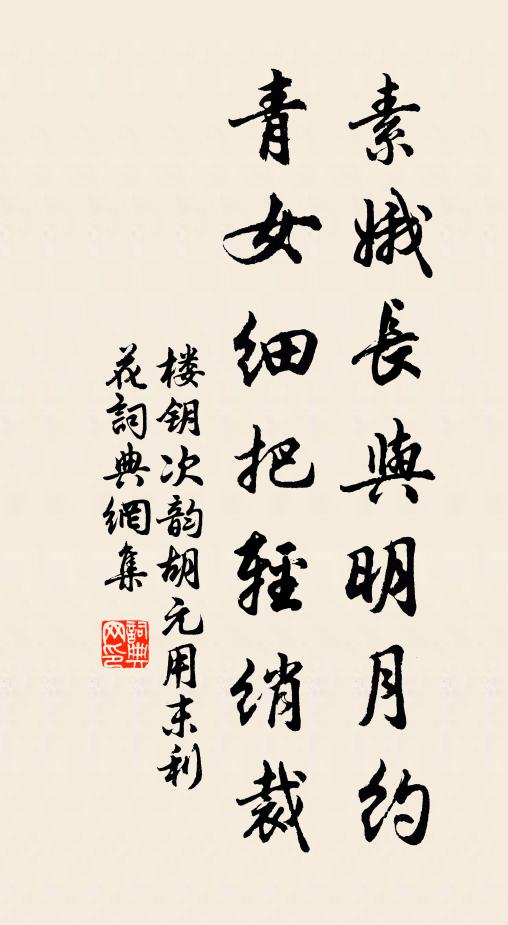 素娥長與明月約
青女細把輕綃裁
楼钥次韵胡元用末利
花詞典網集
詞典网印